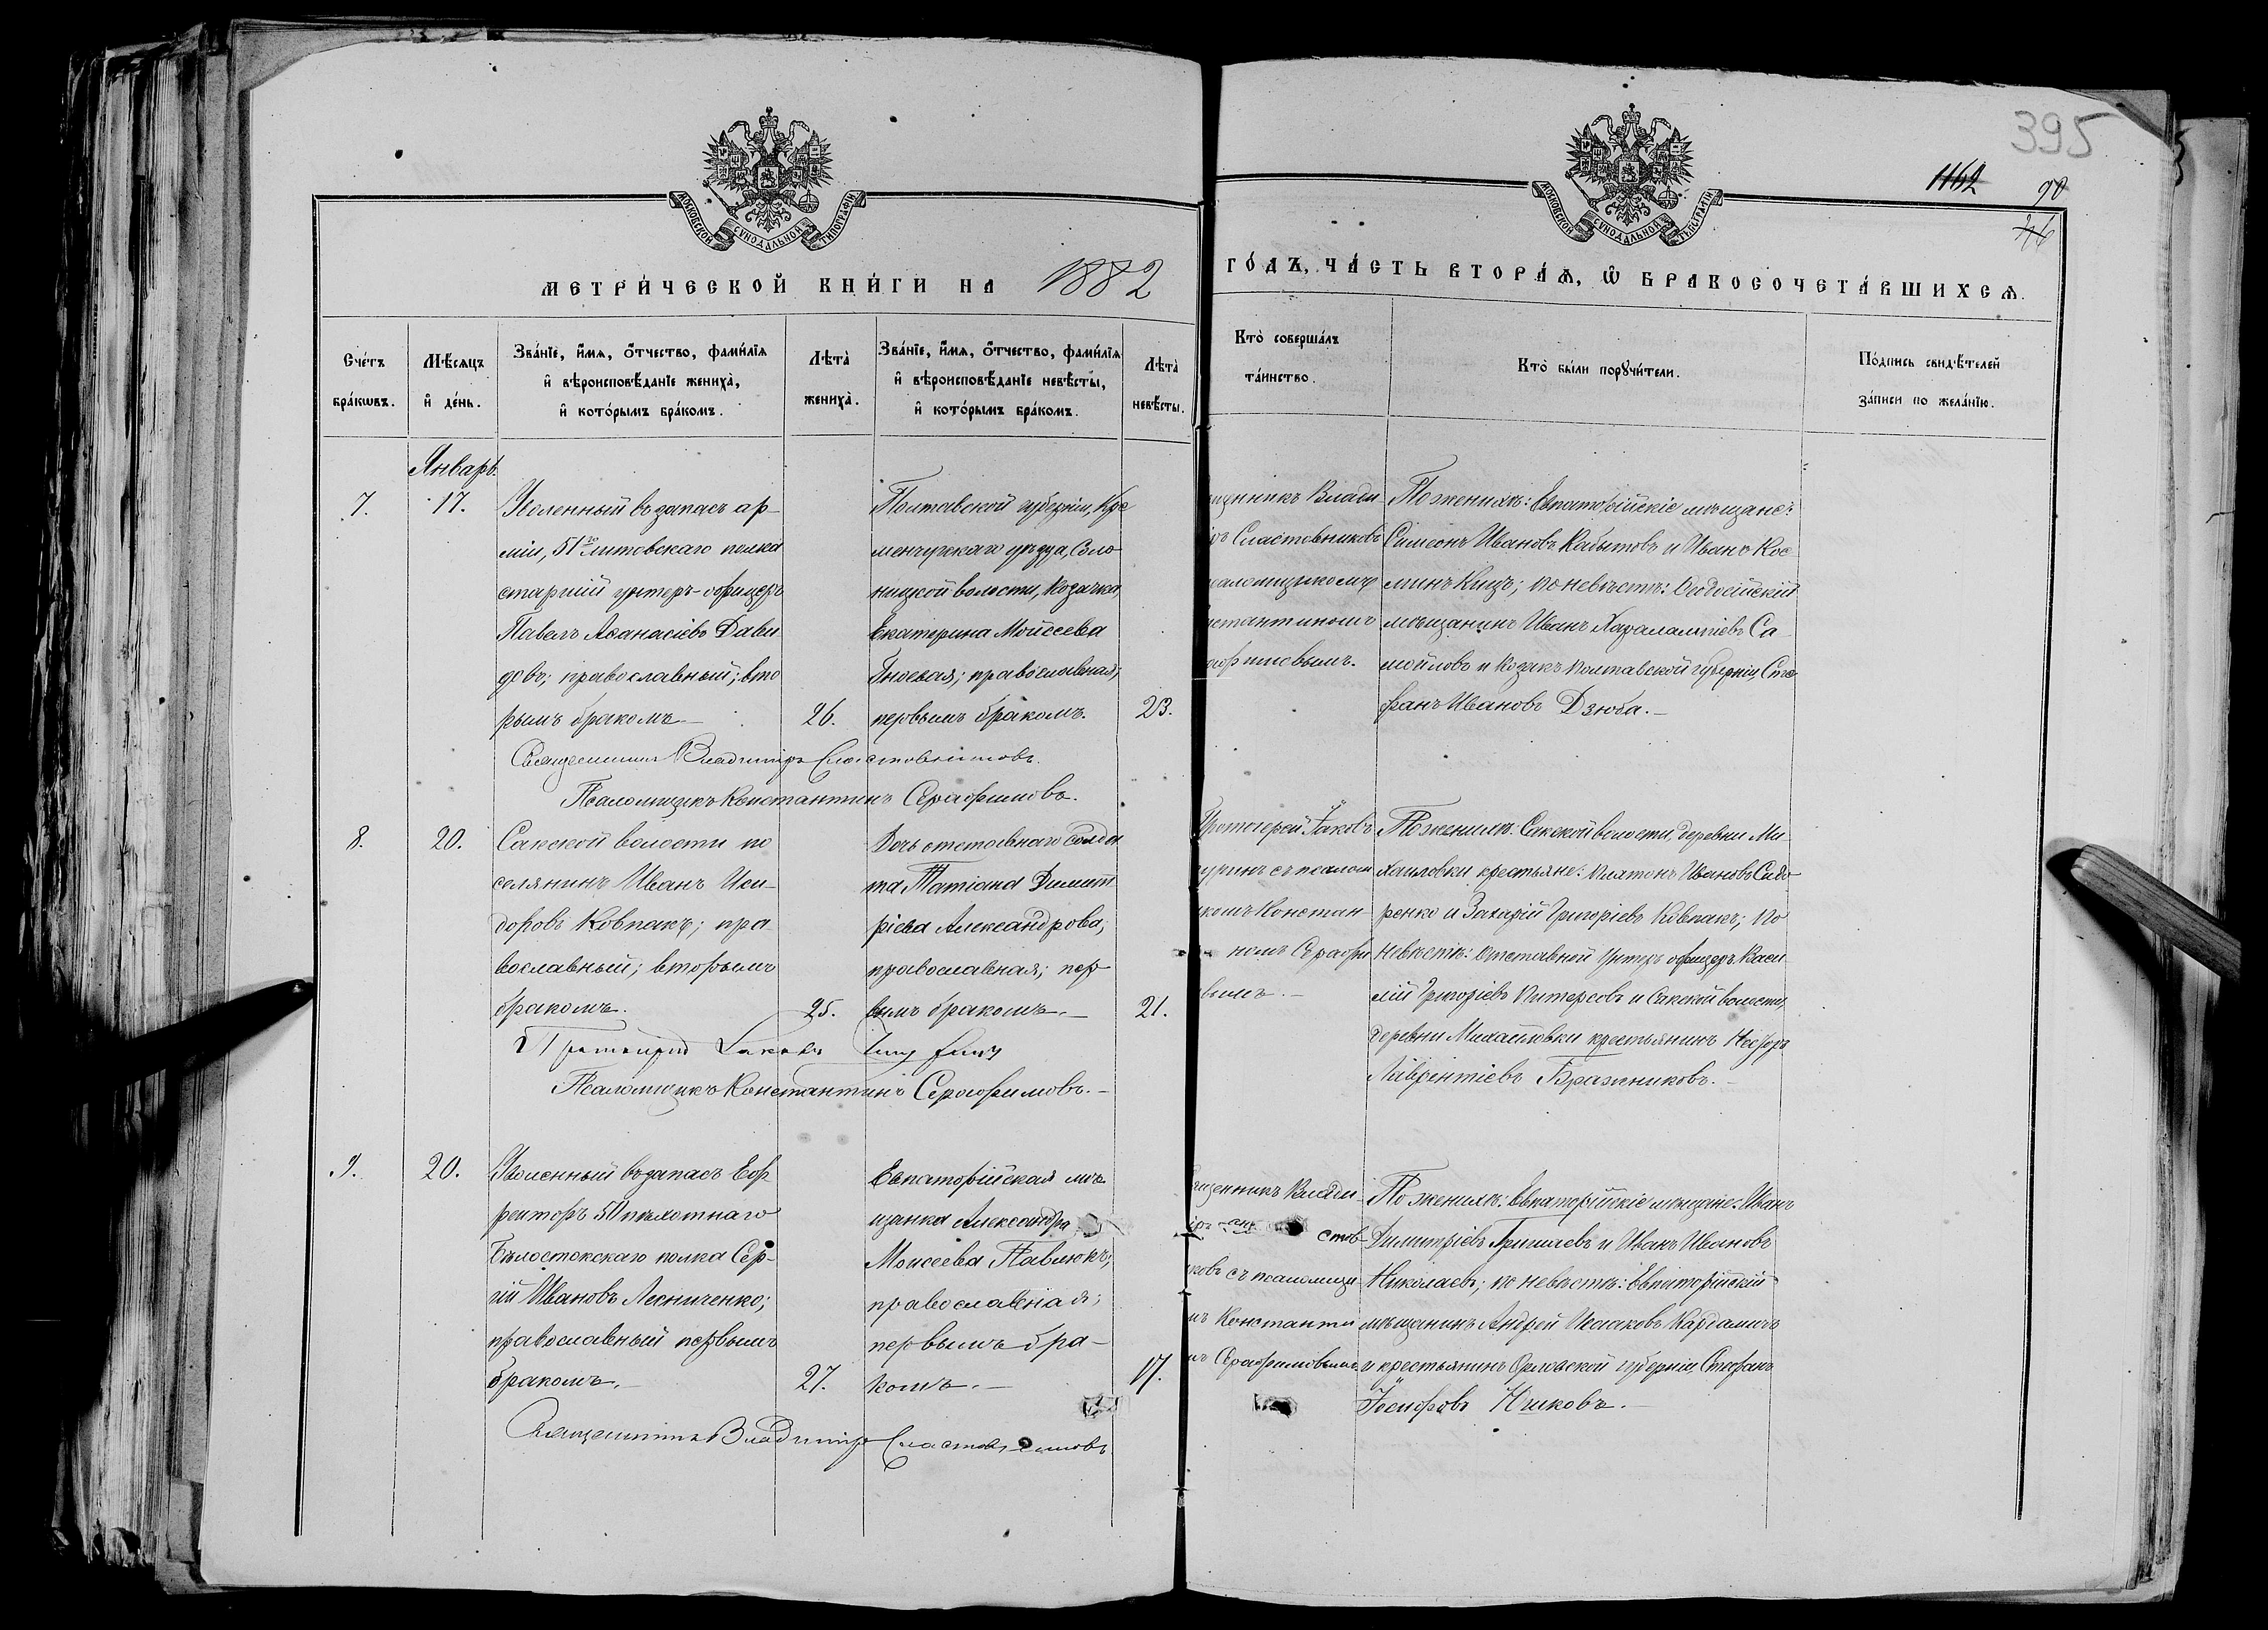 395
1162
90
МОСКОВСКОЙ СѴНОДАЛЬНОЙ ТИПОГРАФІИ
МОСКОВСКОЙ СѴНОДАЛЬНОЙ ТИПОГРАФІИ
МЕТРИ́ЧЕСКОЙ КНИ́ГИ НА 1882
ГО́ДЪ, ЧА́СТЬ ВТОРА́Ѧ, Ѡ҆ БРАКОСОЧЕТА́ВШИХСѦ.
Сче́тъ бра́кωвъ.
Мѣ́сяцъ и҆ де́нь.
Зва́нїе, и҆́мя, ѻ҆́тчество, фами́лїя
и҆ вѣроисповѣ́данїе жениха̀,
и҆ кото́рымъ бра́комъ.
Лѣта̀ жениха̀.
Зва́нїе, и҆́мя, ѻ҆́тчество, фами́лїя
и҆ вѣроисповѣ́данїе невѣ́сты,
и҆ кото́рымъ бра́комъ.
Лѣта̀ невѣ́сты.
Кто̀ соверша́лъ та́инство.
Кто̀ бы́ли порꙋчи́тели.
По́дпись свидѣ́телей за́писи по жела́нїю.
Январь.
7.
17.
Уволенный въ запасъ ар-
міи, 51го Литовскаго полка
старшій унтеръ-офицеръ
Павелъ Аѳанасіевъ Дави
довъ; православный; вто
рымъ бракомъ
26.
Полтавской губерніи, Кре
менчугскаго уѣзда,
волости, козачка,
Екатерина Мойсеева
православная;
первымъ бракомъ.
23.
щенникъ Влади
ръ Сластовниковъ
псаломщикомъ
нстантиномъ
рафимовымъ.
По женихѣ: Евпаторійскіе мѣщане:
Симеонъ Ивановъ Кабытовъ и Иванъ Кос
минъ Кицъ; по невѣстѣ: Ѳеодосійскій
мѣщанинъ Иванъ Харалампіевъ Са
мойловъ и козакъ Полтавской губерніи, Сте
фанъ Ивановъ Дзюба.—
Священникъ Владиміръ Сластовниковъ.
Псаломщикъ Константинъ Серафимовъ.
8.
20.
Сакской волости по
селянинъ Иванъ Иси-
доровъ Ковпакъ; пра
вославный; вторымъ
бракомъ.
25.
Дочь отставнаго солда
та Татіана Димит
ріева Александрова;
православная; пер
вымъ бракомъ.—
21.
Протоіерей Іаковъ
съ псалом
комъ Констан-
номъ Серафи
вымъ.—
По женихѣ: Сакской волости, деревни Ми-
хаиловки крестьяне: Платонъ Ивановъ Сидо
ренко и Захарій Григоріевъ Ковпакъ; по
невѣстѣ: отставной унтеръ офицеръ Васи
лій Григоріевъ Питерсовъ и Сакской волости,
деревни Михаиловки крестьянинъ Несторъ
Лаврентіевъ Бражниковъ.—
Протоіерей Іаковъ
Псаломщикъ Константинъ Серафимовъ.—
9.
20.
Уволенный въ запасъ Еф
рейторъ 50 пѣхотнаго
Бѣлостокскаго полка Сер-
гій Ивановъ Лесниченко;
православный первымъ
бракомъ.—
27.
Евпаторійская мѣ
щанка Александра
Моисеева Павлюкъ;
православная;
первымъ бра-
комъ.—
17.
щенникъ Влади-
стов
ковъ съ псаломщи
мъ Константи
мъ Серафимовымъ
По женихѣ: Евпаторійскіе мѣщане: Иванъ
Димитріевъ Гришаевъ и Иванъ Ивановъ
Николаевъ; по невѣстѣ: Евпаторійскій
мѣщанинъ Андрей Исаковъ Кардашъ
и крестьянинъ Орловской губерніи, Стефанъ
Іосифовъ Юшковъ.—
Священникъ Владиміръ Сластовниковъ